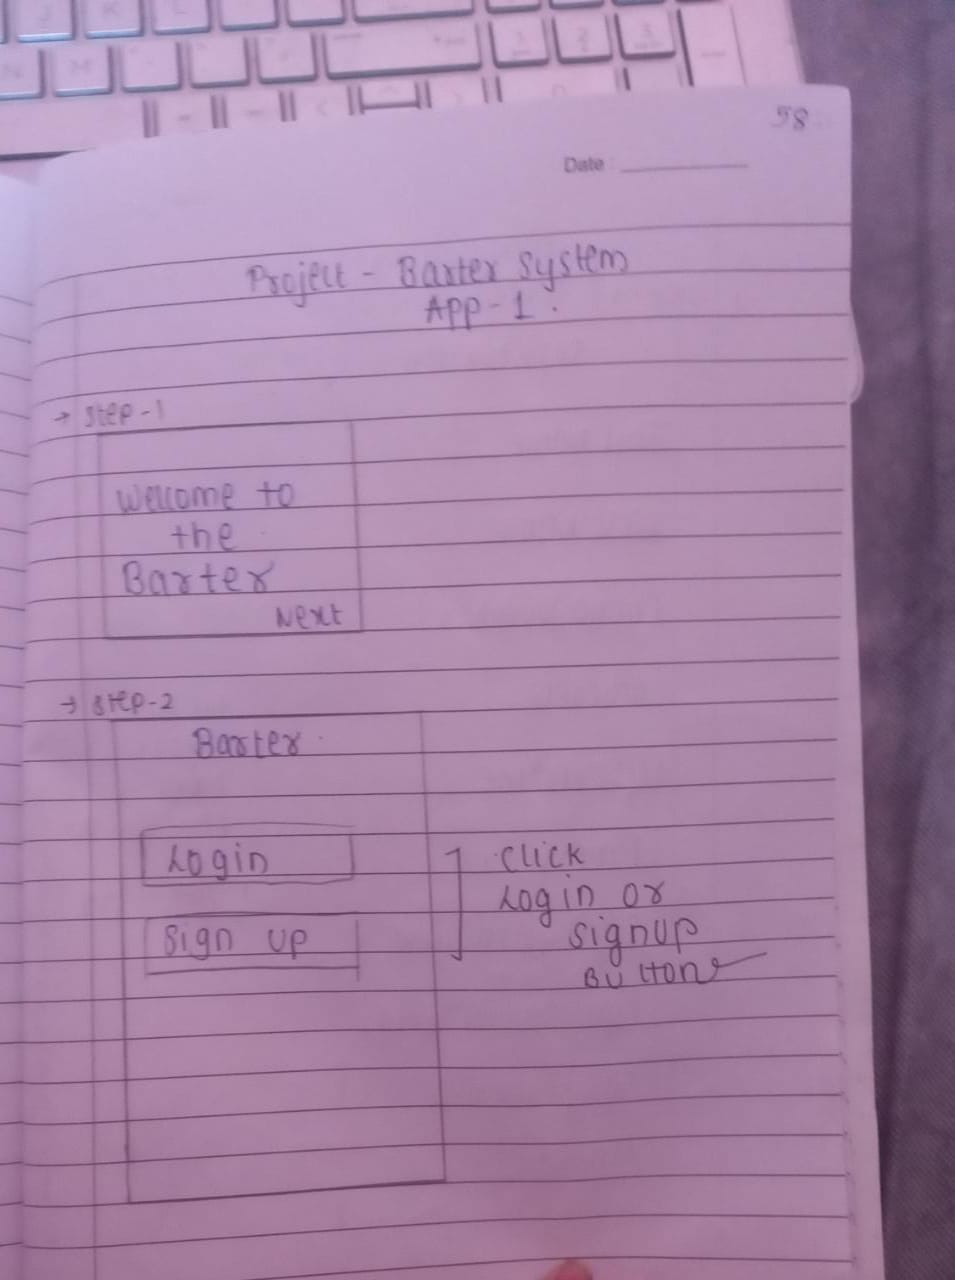 58
Date
Project - Barter System
App - 1.
→ Step - 1
Welcome to
the
Barter
Next
→ Step - 2
Barter
Login
Sign up
Click
Login or
Signup
Buttons